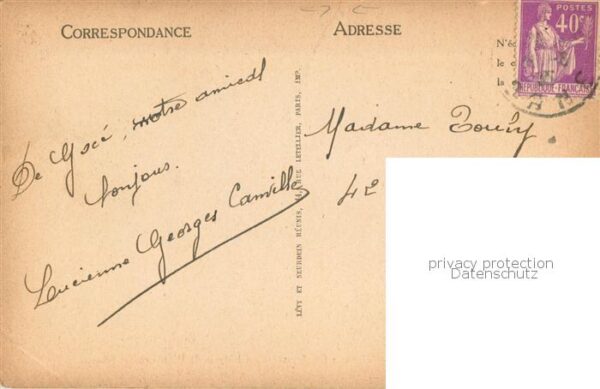 CORRESPONDANCE
ADRESSE
POSTES
40c
RÉPUBLIQUE FRANÇAISE
N'é
le
la
De Gacé, notre amical
toujours.
Lucienne Georges Camille
LÉVY ET NEURDEIN RÉUNIS, LETELLIER, PARIS, IMP.
Madame
42
privacy protection
Datenschutz